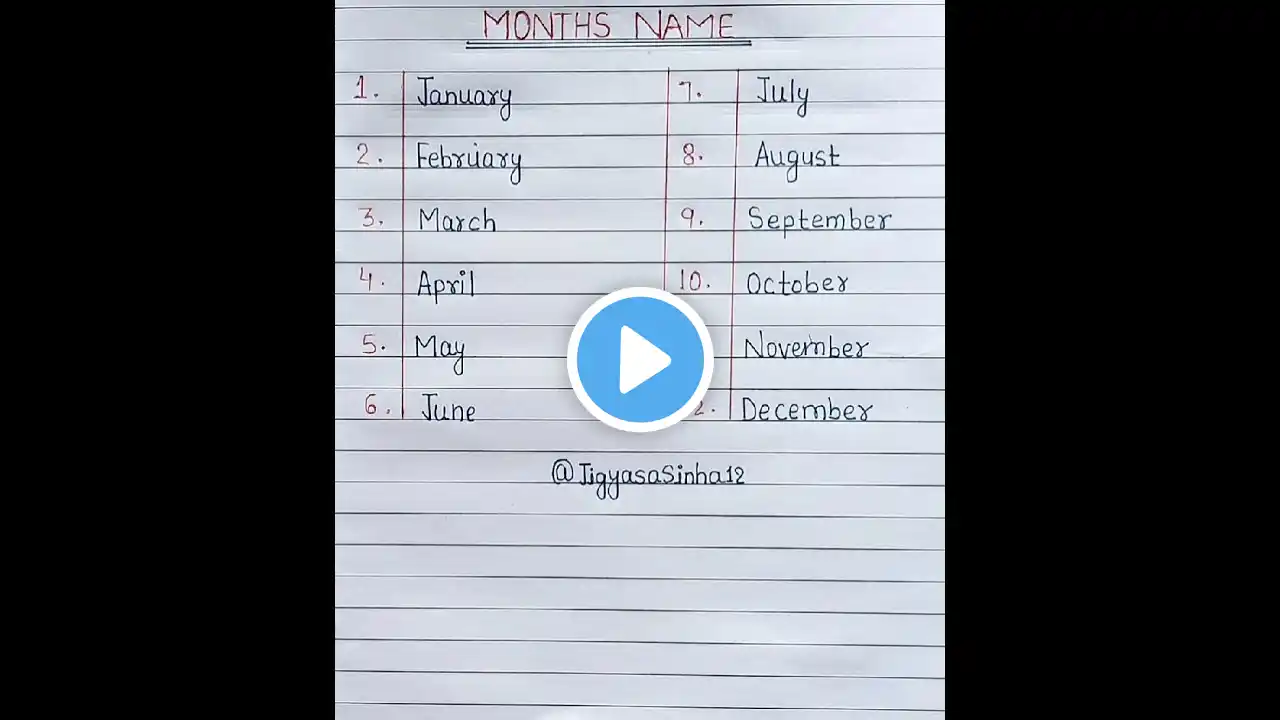 MONTHS NAME
1. January
2. February
3. March
4. April
5. May
6. June
7. July
8. August
9. September
10. October
November
2. December
@JigyasaSinha12